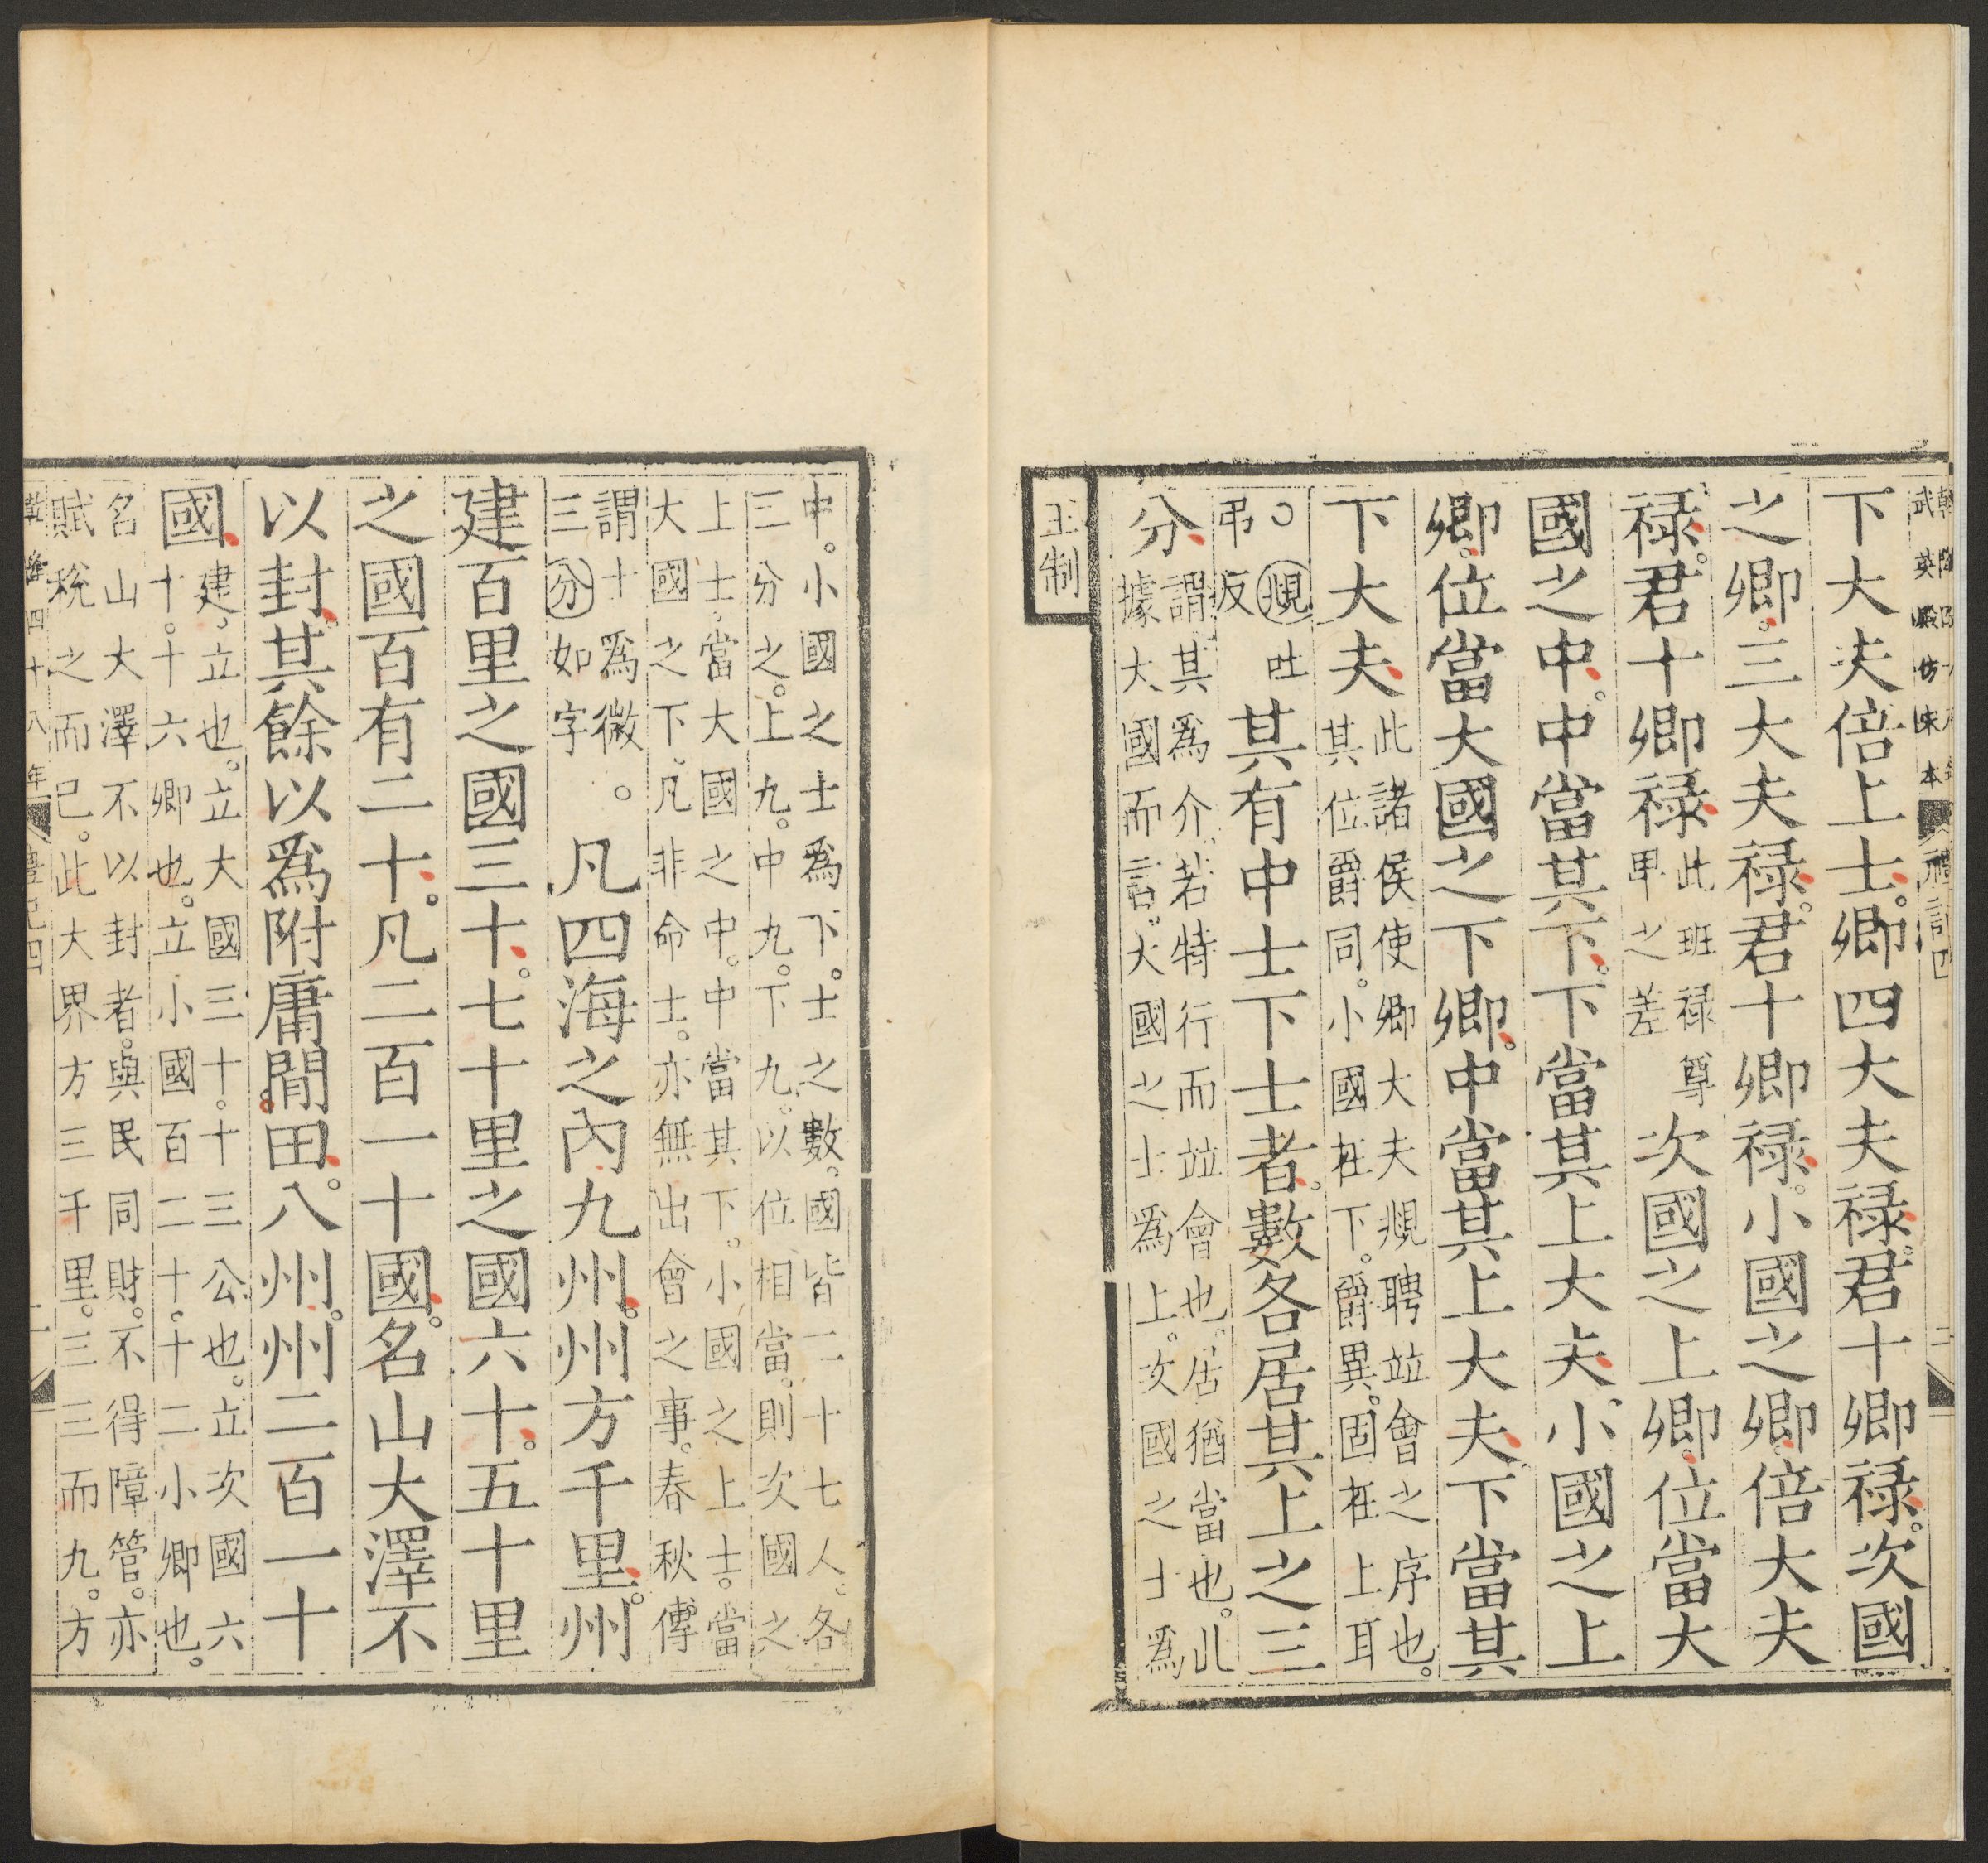 武英殿仿宋本
禮記四
下大夫倍上士。卿四大夫祿。君十卿祿。次國
之卿。三大夫祿。君十卿祿。小國之卿。倍大夫
祿。君十卿祿
此班祿尊
卑之差
次國之上卿。位當大
國之中。中當其下。下當其上大夫。小國之上
卿。位當大國之下卿。中當其上大夫。下當其
下大夫
此諸侯使卿大夫覜聘竝會之序也。
其位爵同。小國在下。爵異。固在上耳
○覜吐
弔反
其有中士下士者。數各居其上之三
分
謂其爲介。若特行而竝會也。居猶當也。此
據大國而言。大國之士爲上。次國之士爲
王制
中。小國之士爲下。士之數。國皆二十七人。各
三分之。上九。中九。下九。以位相當。則次國之
上士。當大國之中。中當其下。小國之上士。當
大國之下。凡非命士。亦無出會之事。春秋傳
謂士爲微。○
三分如字
凡四海之內九州。州方千里。州
建百里之國三十。七十里之國六十。五十里
之國百有二十。凡二百一十國。名山大澤不
以封。其餘以爲附庸閒田。八州。州二百一十
國
建。立也。立大國三十。十三公也。立次國六
十。十六卿也。立小國百二十。十二小卿也。
名山大澤不以封者。與民同財。不得障管。亦
賦稅之而已。此大界方三千里。三三而九。方
乾隆四十八年
禮記四